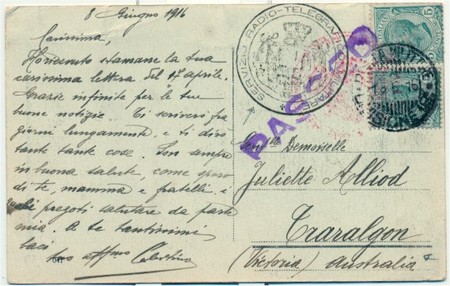 8 Giugno 1916
Carissima,
Ricevuto stamane la tua
carissima lettera del 17 aprile.
Grazie infinite per le tue
buone notizie. Ti scriverò fra
giorni lungamente, e ti dirò
tante tante cose. Son sempre
in buona salute, come spero
di te, mamma e fratelli, i
quali pregoti salutare da parte
mia. A te tantissimi
baci
tuo affmo Celestino
SERVIZIO RADIO-TELEGRAF
MILITARE
PASSED
Demoiselle
Juliette Alliod
Traralgon
(Victoria) Australia